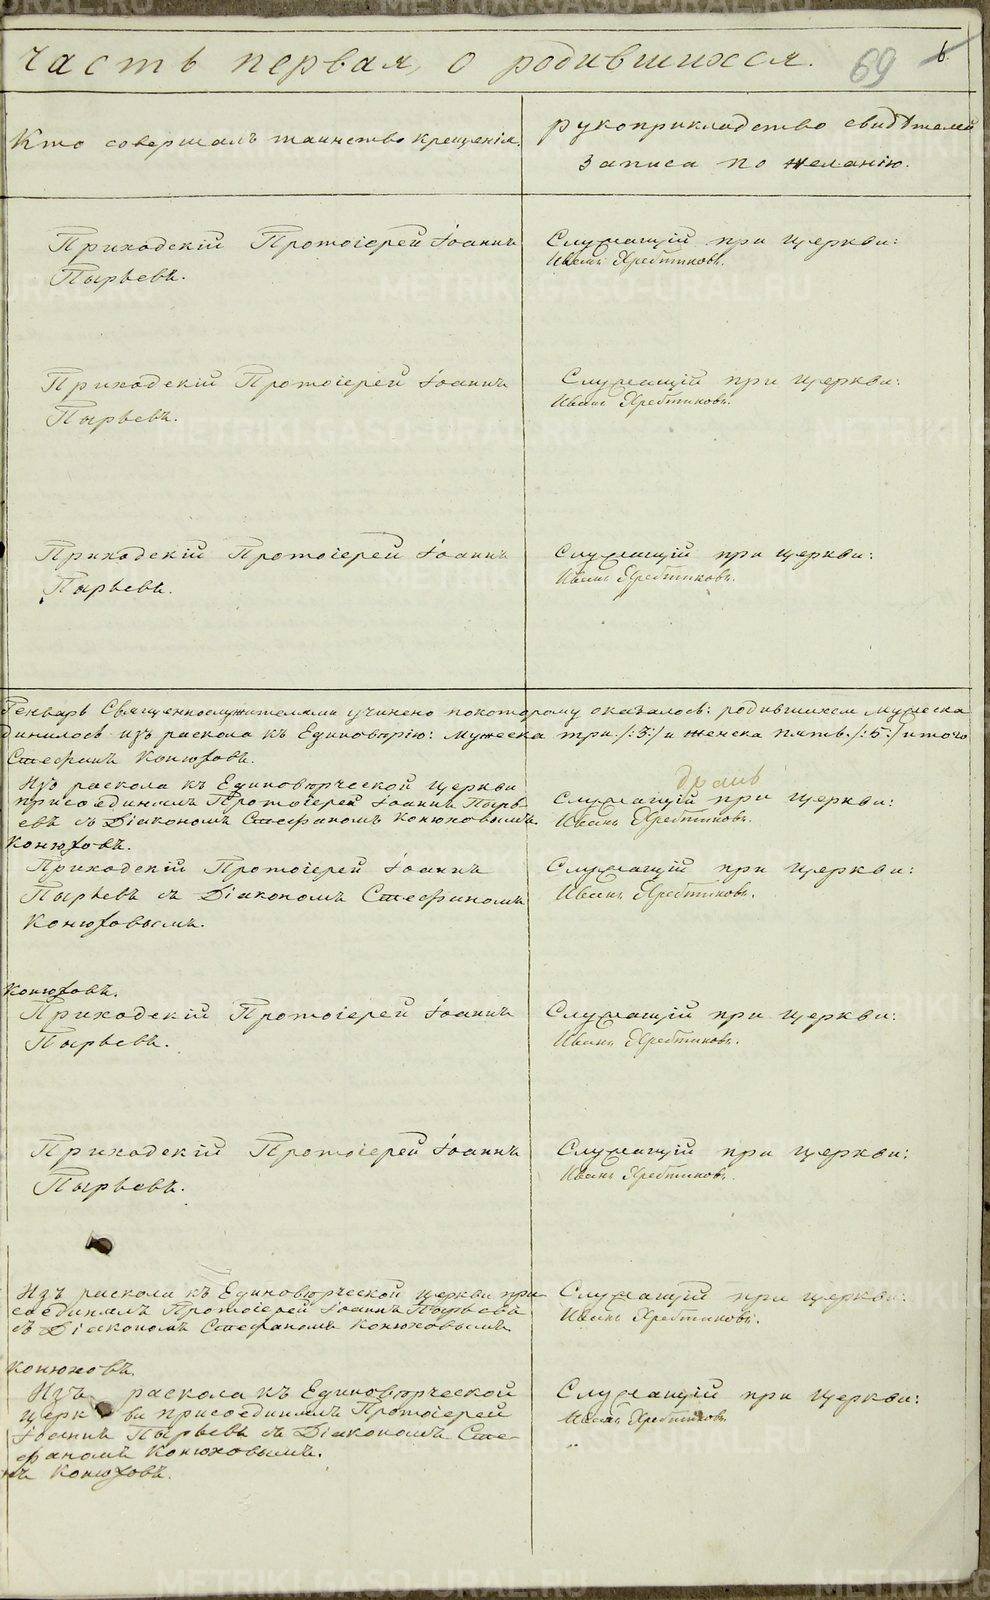 часть первая, о родившихся. 69 6
Кто совершалъ таинство крещенія.
рукоприкладство свидѣтелей
записа по желанію.
Приходскій Протоіерей Іоаннъ
Пырьевъ.
Служащій при церкви:
Иванъ Хребтиковъ.
Приходскій Протоіерей Іоаннъ
Пырьевъ.
Служащій при церкви:
Иванъ Хребтиковъ.
Приходскій Протоіерей Іоаннъ
Пырьевъ.
Служащій при церкви:
Иванъ Хребтиковъ.
Генварь Священнослужителями учинено покоторому оказалось: родившихся мужеска
динилось изъ раскола къ Единовѣрію: мужеска три /:3:/ и женска пять /:5:/ итого
Стефанъ Конюховъ.
Изъ раскола къ Единовѣрческой церкви
присоединялъ Протоіерей Іоаннъ Пырь-
евъ съ Діакономъ Стефаномъ Конюховымъ.
Служащій при церкви:
Иванъ Хребтиковъ.
Конюховъ.
Приходскій Протоіерей Іоаннъ
Пырьевъ съ Діакономъ Стефаномъ
Конюховымъ.
Служащій при церкви:
Иванъ Хребтиковъ.
Конюховъ.
Приходскій Протоіерей Іоаннъ
Пырьевъ.
Служащій при церкви:
Иванъ Хребтиковъ.
Приходскій Протоіерей Іоаннъ
Пырьевъ.
Служащій при церкви:
Иванъ Хребтиковъ.
Изъ раскола къ Единовѣрческой церкви при
соединялъ Протоіерей Іоаннъ Пырьевъ
съ Діакономъ Стефаномъ Конюховымъ
Служащій при церкви:
Иванъ Хребтиковъ.
Конюховъ.
Изъ раскола къ Единовѣрческой
церкви присоединялъ Протоіерей
Іоаннъ Пырьевъ съ Діакономъ Сте-
фаномъ Конюховымъ.
нъ Конюховъ.
Служащій при церкви:
Иванъ Хребтиковъ
METRIKI.GASO-URAL.RU